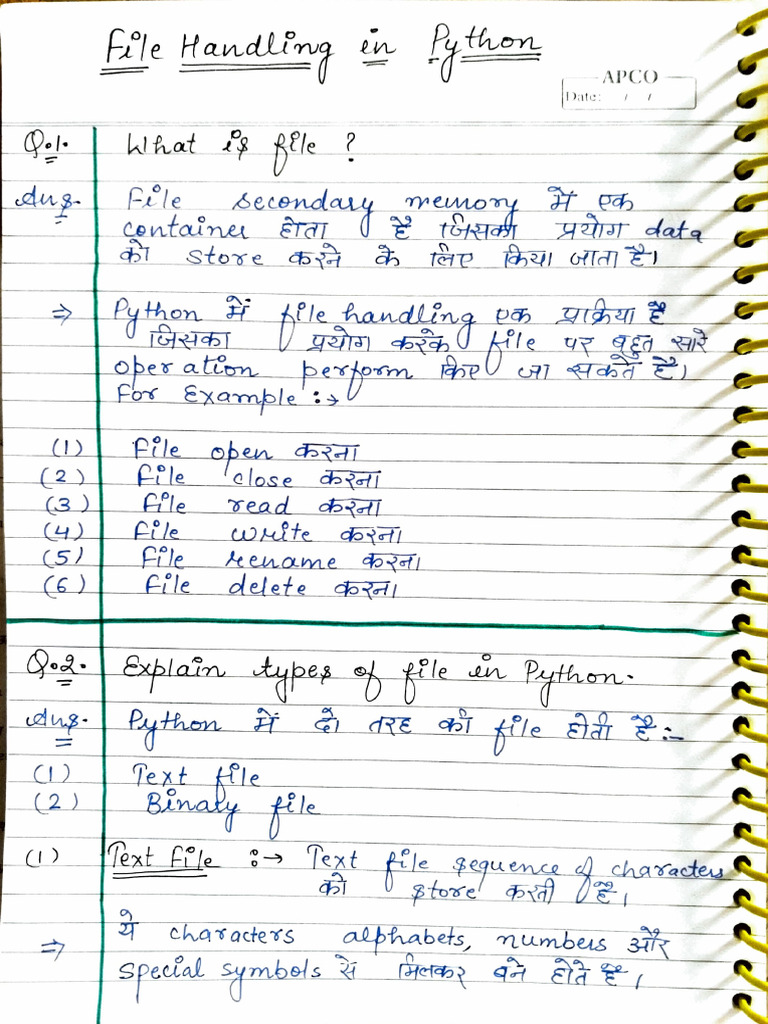 File Handling in Python
APCO
Date: / /
Q.1. What is file ?
Ans. File secondary memory में एक
container होता है जिसका प्रयोग data
को store करने के लिए किया जाता है।
⇒ Python में file handling एक प्राक्रिया है
जिसका प्रयोग करके file पर बहुत सारे
operation perform किए जा सकते है।
For Example :→
(1) File open करना
(2) File close करना।
(3) File read करना।
(4) File write करना।
(5) File rename करना।
(6) File delete करना।
Q.2. Explain types of file in Python.
Ans. Python में दो तरह की file होती है :-
(1) Text file
(2) Binary file
(1) Text File :→ Text file sequence of characters
को store करती है।
⇒ ये characters alphabets, numbers और
special symbols से मिलकर बने होते है।